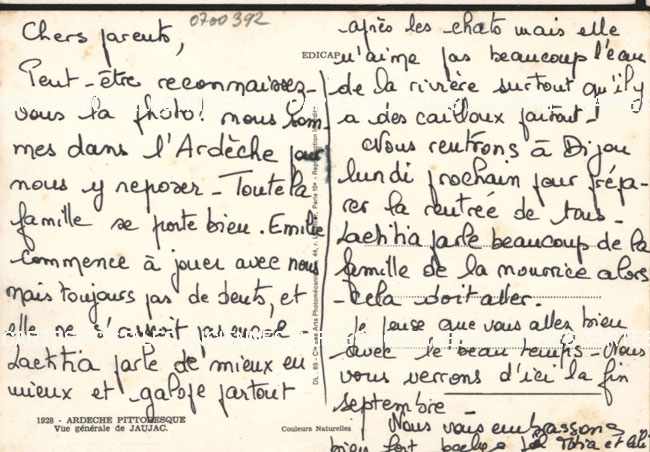 0700392
Chers parents,
Peut-être reconnaissez-
vous la photo! nous som-
mes dans l'Ardèche pour
nous y reposer - Toute la
famille se porte bien. Emilie
commence à jouer avec nous
mais toujours pas de dents, et
elle ne s'assoit
Laetitia parle de mieux en
mieux et galope partout
1928 - ARDECHE PITTORESQUE
Vue générale de JAUJAC.
EDICAP
Couleurs Naturelles
après les chats mais elle
n'aime pas beaucoup l'eau
de la rivière surtout qu'il y
a des cailloux partout!
Nous rentrons à Dijon
lundi prochain pour prépa-
rer la rentrée de tous -
Laetitia parle beaucoup de la
famille de la nourrice alors
cela doit aller.
Je pense que vous allez bien
avec le beau temps - Nous
vous verrons d'ici la fin
septembre
Nous vous embrassons
bien fort